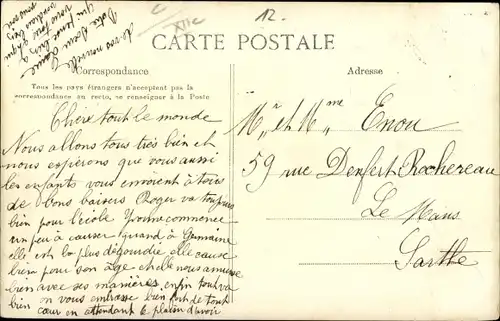 12.
CARTE POSTALE
Correspondance
Tous les pays étrangers n'acceptent pas la
correspondance au recto, se renseigner à la Poste
Adresse
Chère tout le monde
Nous allons tous très bien et
nous espérons que vous aussi
les enfants vous envoient à tous
de bons baisers Roger va toujours
bien pour l'école Yvonne commence
un peu à causer Quand à Germaine
elle est la plus dégourdie elle cause
bien pour son age et elle nous amuse
bien avec ses manières enfin tout va
bien on vous embrasse bien fort de tout
cœur en attendant le plaisir d'avoir
de vos nouvelles
Votre sœur
qui pense bien à
vous
Mr et Mme Enou
59 rue Denfert Rochereau
Le Mans
Sarthe